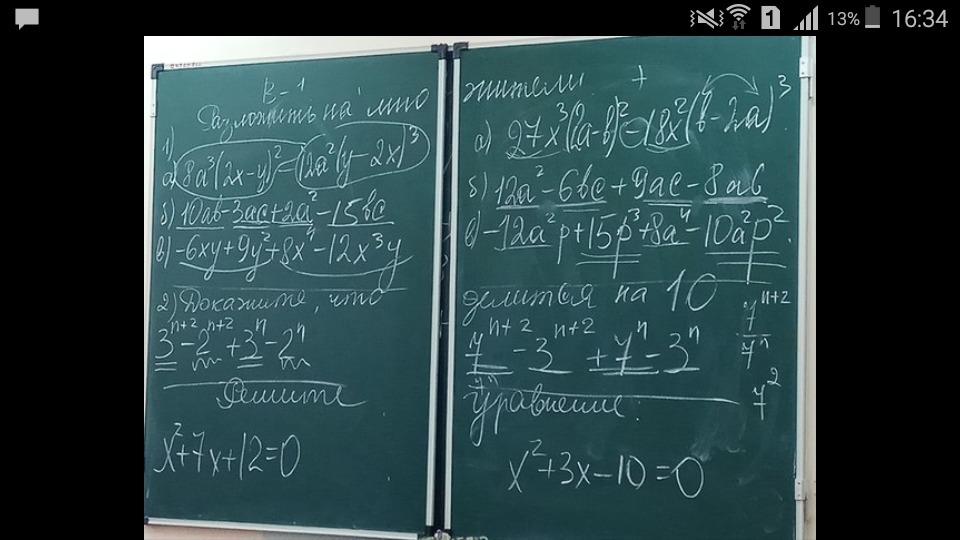 13% 16:34
В-1
Разложить на мно
1)
а) 8a³(2x-y)² - 12a²(y-2x)³
б) 10ab-3ac+2a²-15bc
в) -6xy+9y²+8x⁴-12x³y
2) Докажите, что
3ⁿ⁺²-2ⁿ⁺²+3ⁿ-2ⁿ
Решите
x²+7x+12=0
жители
а) 27x³(2a-b)²-18x²(b-2a)³
б) 12a²-6bc+9ac-8ab
в) -12a²p+15p³+8a⁴-10a²p²
делится на 10
7ⁿ⁺²-3ⁿ⁺²+7ⁿ-3ⁿ
7ⁿ⁺²
7ⁿ
7²
Уравнение:
x²+3x-10=0